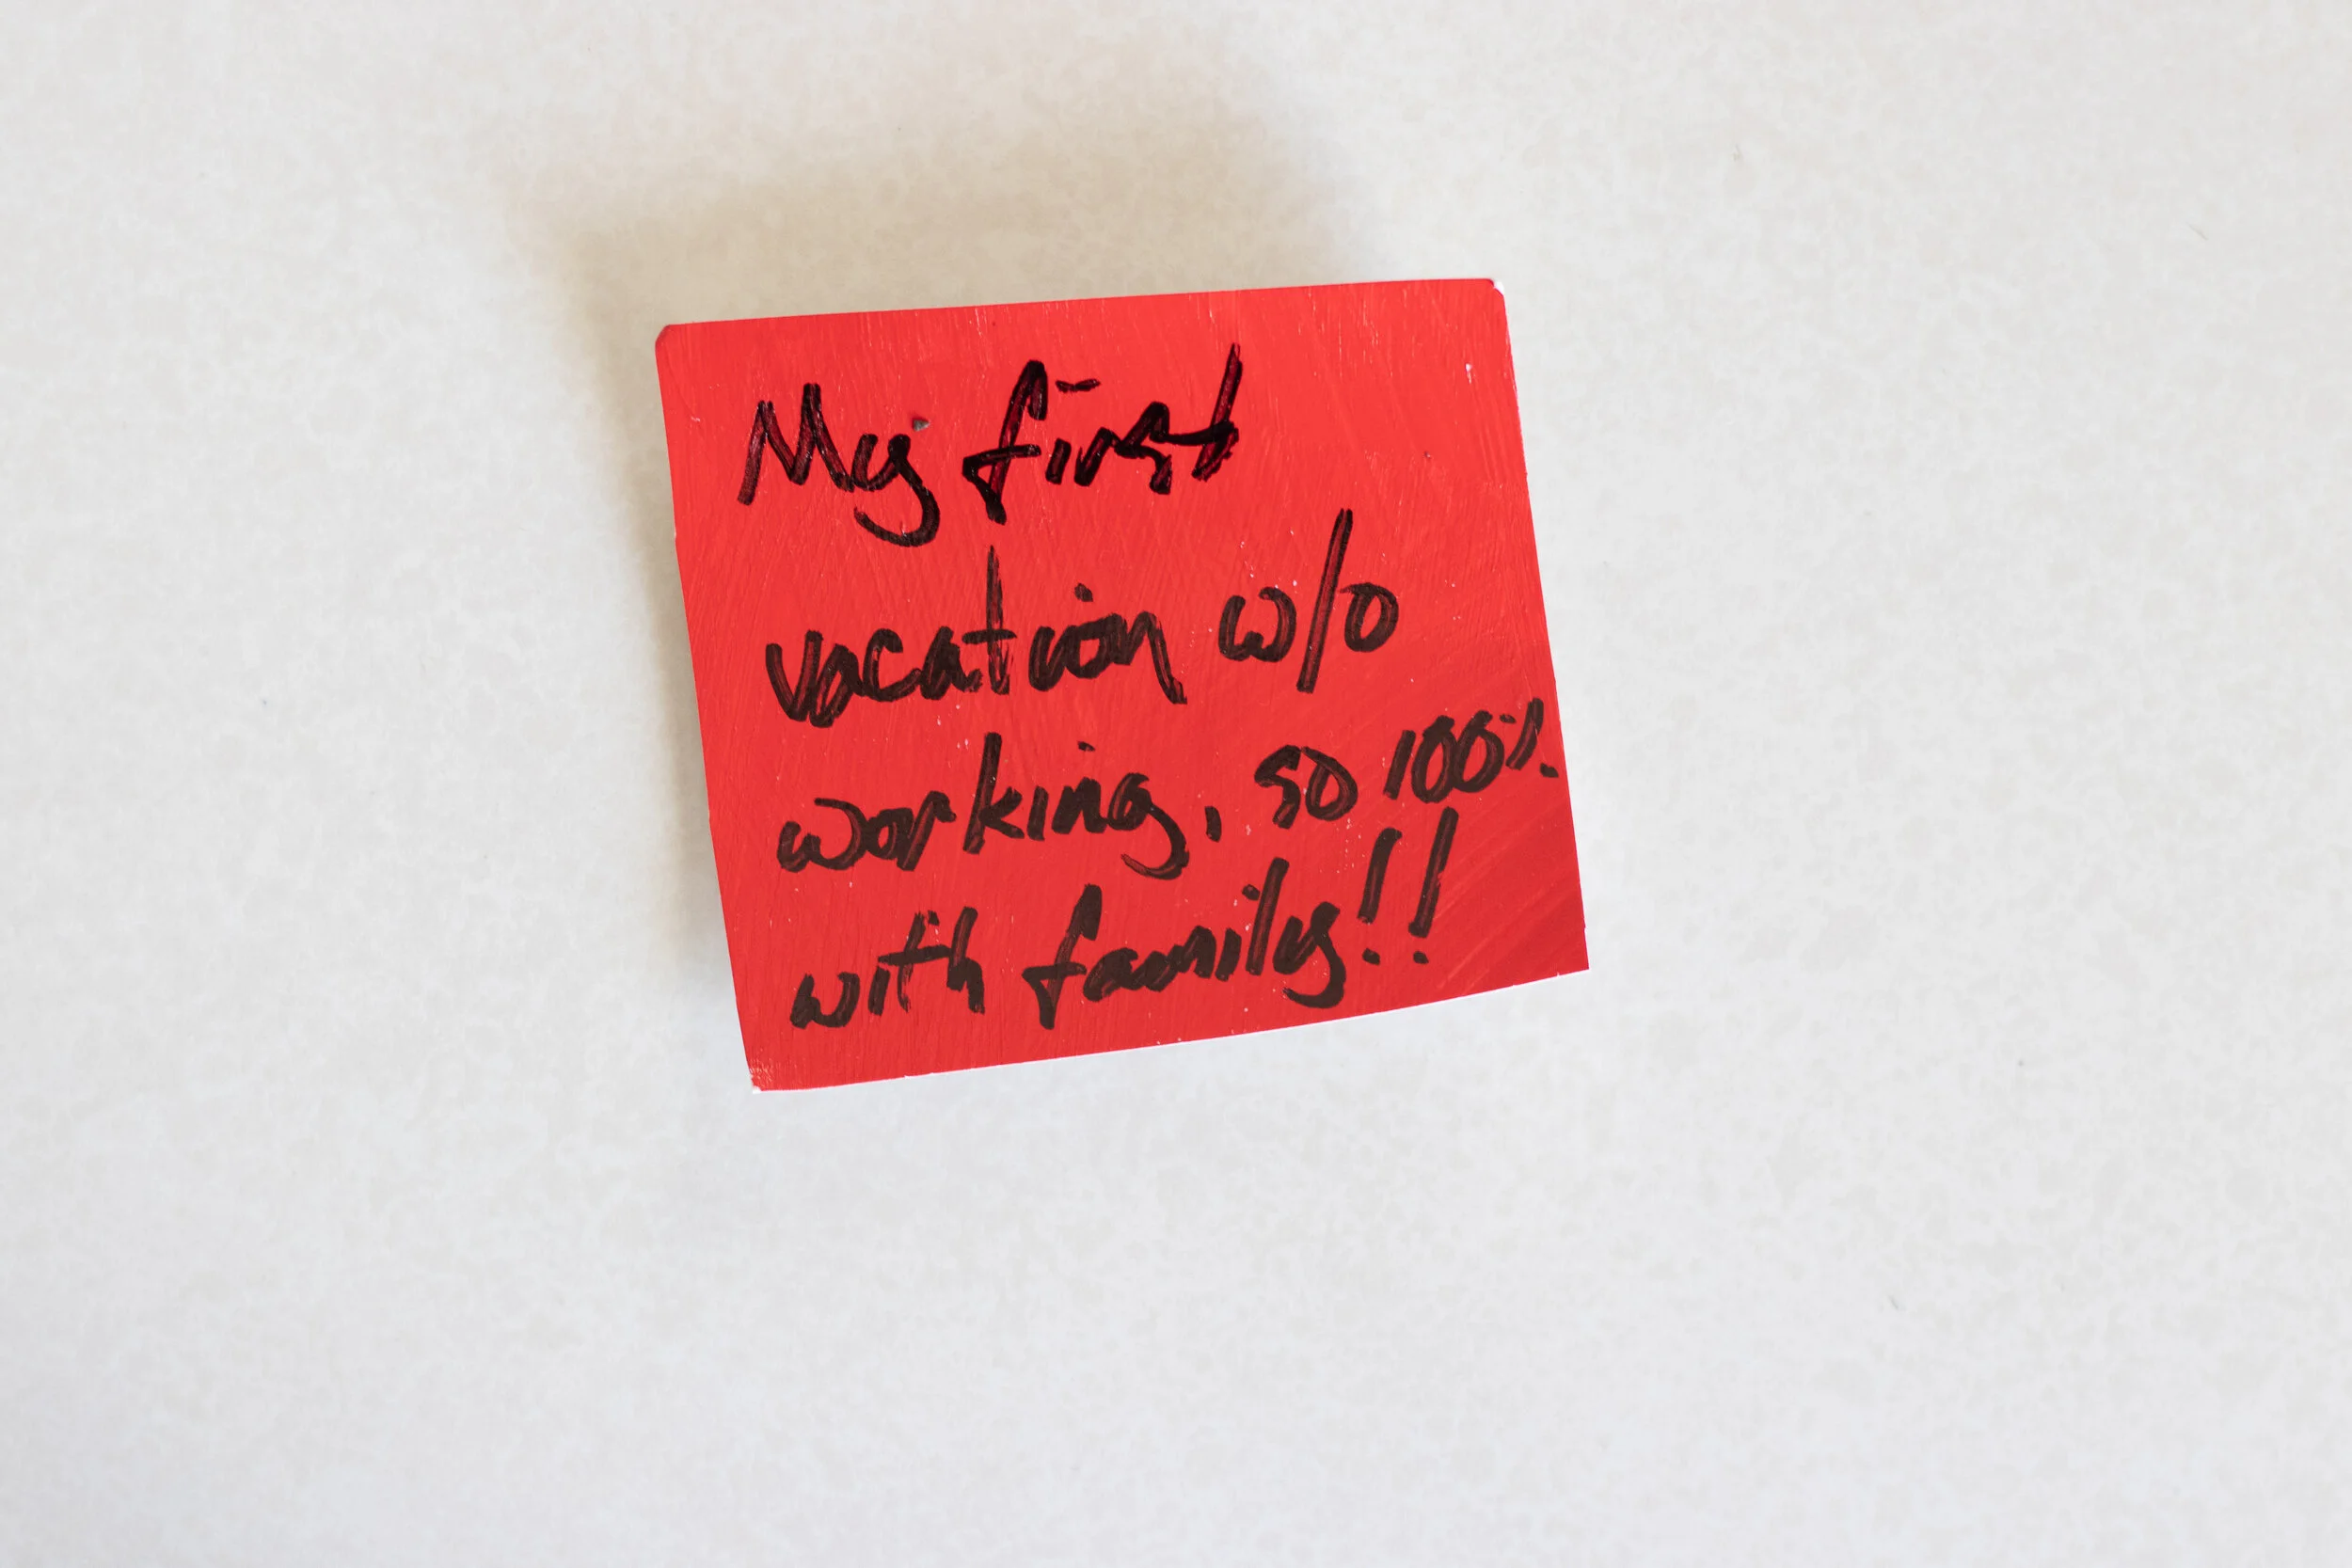 My first
vacation w/o
working, so 100%
with family!!